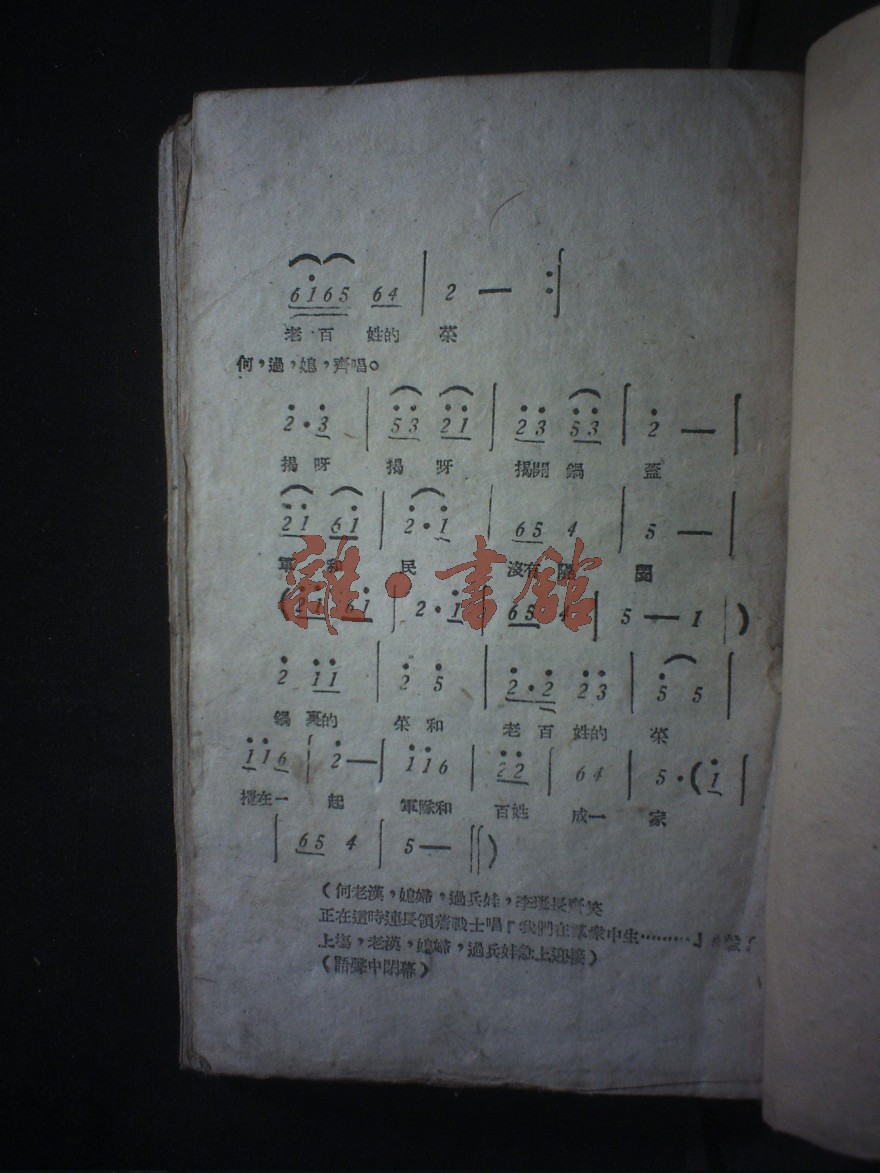 6 1̇ 6 5 6 4 | 2 — :|
老百姓的菜
何,過,媳,齊唱。
2̇ · 3̇ | 5̇ 3̇ 2̇ 1̇ | 2̇ 3̇ 5̇ 3̇ | 2̇ — |
揭呀 揭呀 揭開鍋蓋
2̇ 1̇ 6 1̇ | 2̇ · 1̇ | 6 5 4 | 5 — |
軍和民 沒有隔閡
(2̇ 1̇ 6 1̇ | 2 · 1̇ | 6 5 4 | 5 — 1 |)
雜·書館
2̇ 1̇ 1̇ | 2̇ 5̇ | 2̇ · 2̇ 2̇ 3̇ | 5̇ 5 |
鍋裏的 菜和 老百姓的 菜
1̇ 1̇ 6 | 2̇ — | 1̇ 1̇ 6 | 2̇ 2̇ | 6 4 | 5 · (1̇ |
攪在一起 軍隊和百姓 成一家
| 6 5 4 | 5 — ||)
(何老漢,媳婦,過兵娃,李班長齊笑
正在這時連長領着戰士唱『我們在羣衆中生………』
上場,老漢,媳婦,過兵娃急上迎接)
(語聲中閉幕)